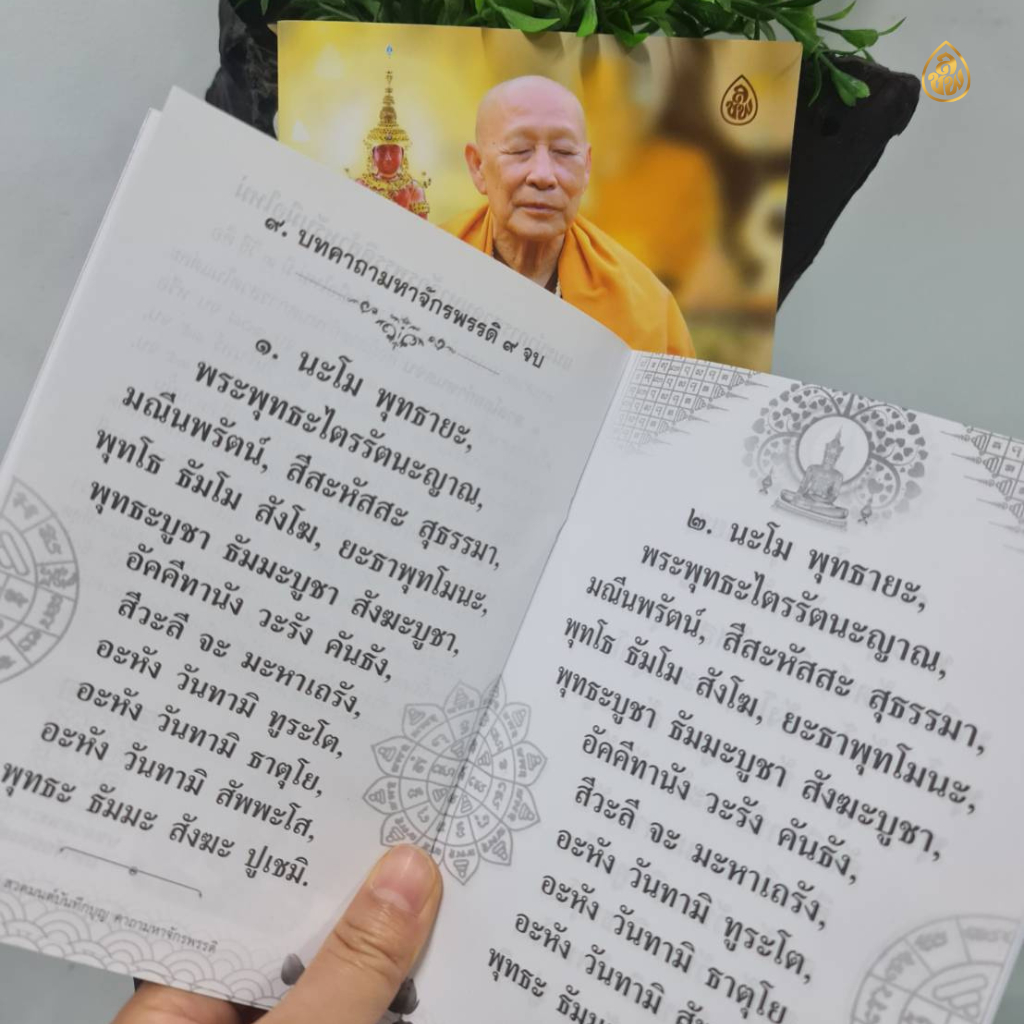 ๙. บทคาถามหาจักรพรรดิ ๙ จบ
๑. นะโม พุทธายะ,
พระพุทธะไตรรัตนะญาณ,
มณีนพรัตน์, สีสะหัสสะ สุธรรมา,
พุทโธ ธัมโม สังโฆ, ยะธาพุทโมนะ,
พุทธะบูชา ธัมมะบูชา สังฆะบูชา,
อัคคีทานัง วะรัง คันธัง,
สีวะลี จะ มะหาเถรัง,
อะหัง วันทามิ ทูระโต,
อะหัง วันทามิ ธาตุโย,
อะหัง วันทามิ สัพพะโส,
พุทธะ ธัมมะ สังฆะ ปูเชมิ.
สวดมนต์บันทึกบุญ คาถามหาจักรพรรดิ
๒. นะโม พุทธายะ,
พระพุทธะไตรรัตนะญาณ,
มณีนพรัตน์, สีสะหัสสะ สุธรรมา,
พุทโธ ธัมโม สังโฆ, ยะธาพุทโมนะ,
พุทธะบูชา ธัมมะบูชา สังฆะบูชา,
อัคคีทานัง วะรัง คันธัง,
สีวะลี จะ มะหาเถรัง,
อะหัง วันทามิ ทูระโต,
อะหัง วันทามิ ธาตุโย
อะหัง วันทามิ
พุทธะ